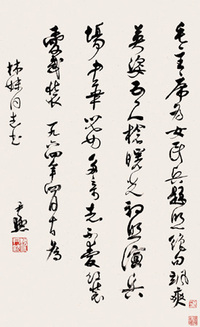 毛主席为女民兵题照绝句飒爽
英姿五尺枪曙光初照演兵
场中华儿女多奇志不爱红装
爱武装一九六四年四月十日为
林妹同志书